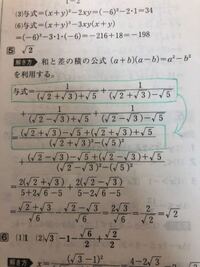 (3)与式=(x+y)²−2xy=(−6)²−2・1=34
(6)与式=(x+y)³−3xy(x+y)
=(−6)³−3・1・(−6)=−216+18=−198
5 √2
解き方 和と差の積の公式 (a+b)(a−b)=a²−b²
を利用する。
与式= 1/((√2+√3)+√5) + 1/((√2+√3)−√5)
+ 1/((√2−√3)+√5) + 1/((√2−√3)−√5)
= ((√2+√3)−√5+(√2+√3)+√5)/((√2+√3)²−(√5)²)
+ ((√2−√3)−√5+(√2−√3)+√5)/((√2−√3)²−(√5)²)
= 2(√2+√3)/(5+2√6−5) + 2(√2−√3)/(5−2√6−5)
= (√2+√3)/√6 − (√2−√3)/√6 = 2√3/√6 = 2/√2 = √2
6 (1)1 (2)√3−1−√6/2+√2/2